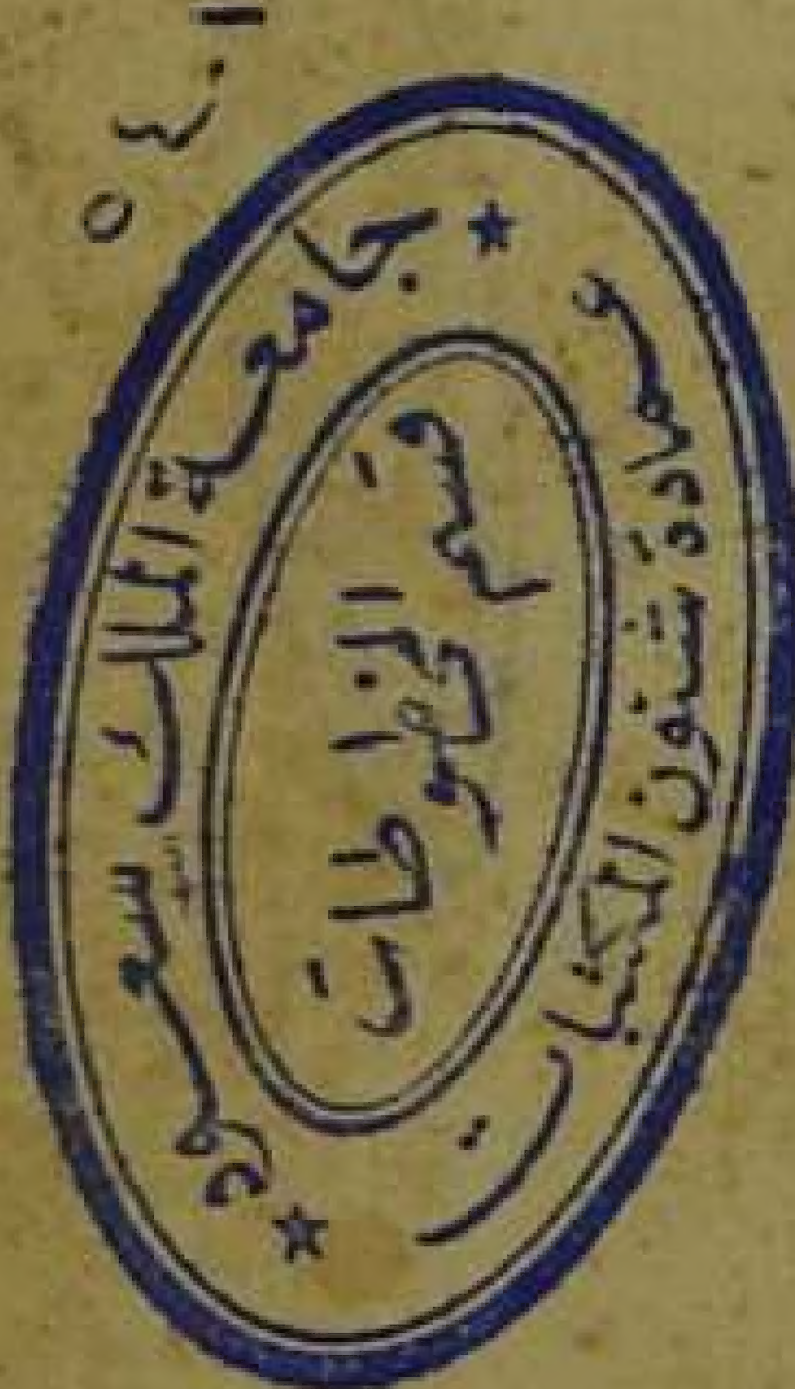 ٥٤٠١
جامعة الملك سعود
قسم
المخطوطات
عمادة شئون المكتبات